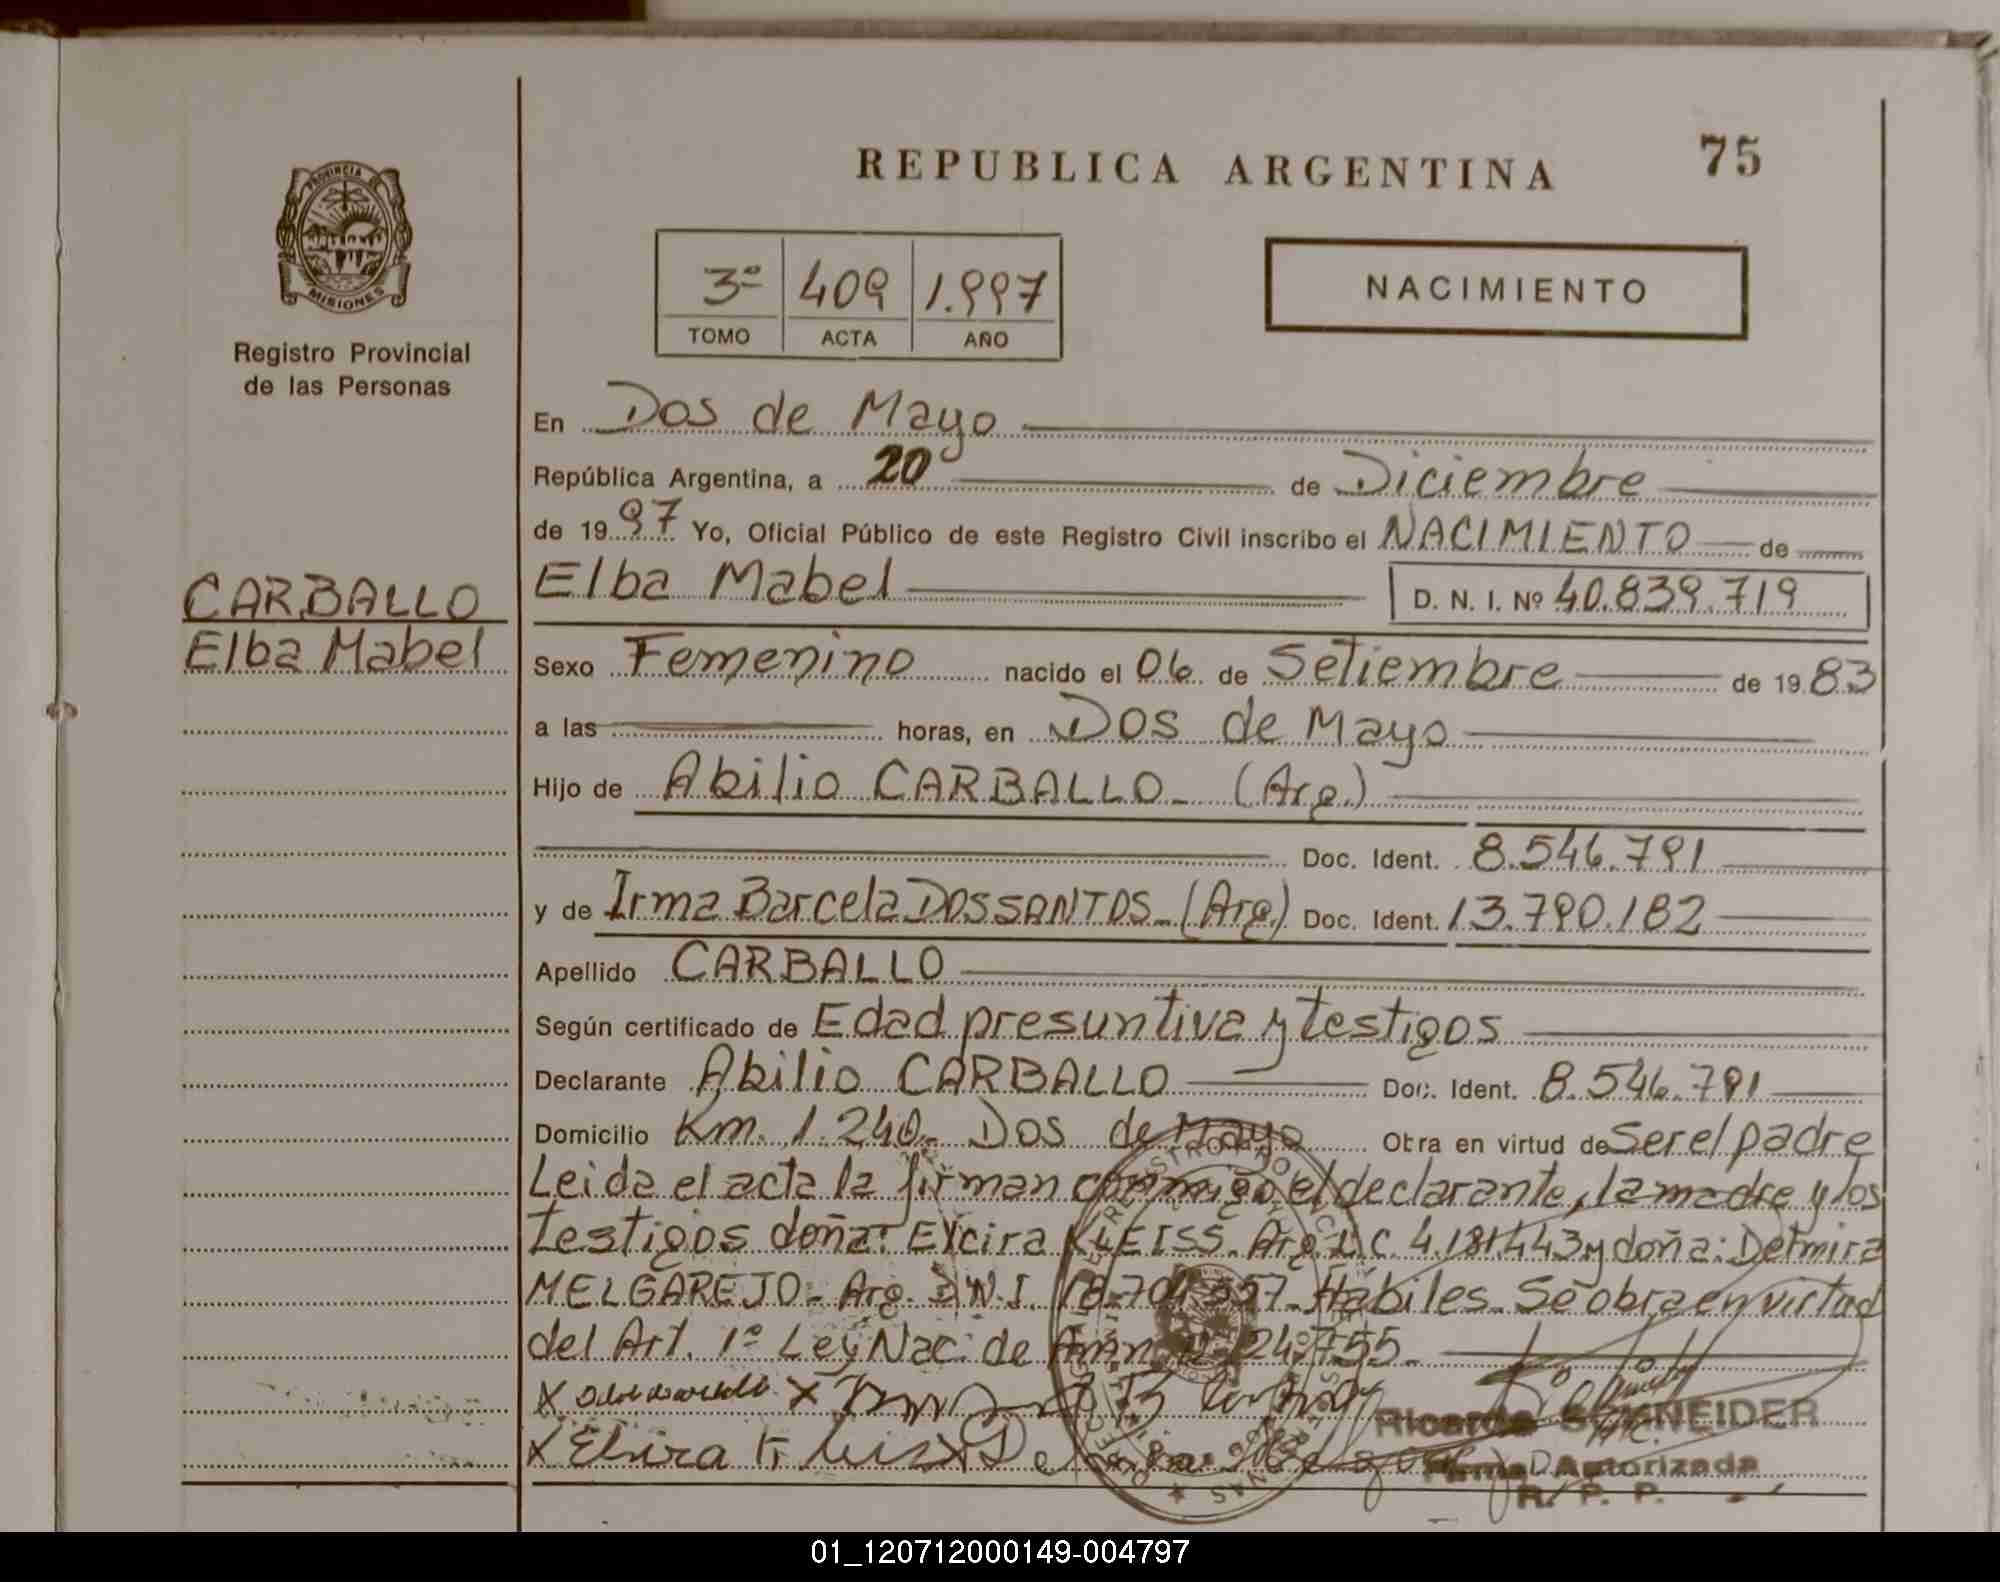 REPUBLICA ARGENTINA 75
PROVINCIA DE
MISIONES
Registro Provincial
de las Personas
3º 409 1.997
TOMO ACTA AÑO
NACIMIENTO
CARBALLO
Elba Mabel
En Dos de Mayo
República Argentina, a 20 de Diciembre
de 1997 Yo, Oficial Público de este Registro Civil inscribo el NACIMIENTO de
Elba Mabel D. N. I. Nº 40.839.719
Sexo Femenino nacido el 06 de Setiembre de 1983
a las horas, en Dos de Mayo
Hijo de Abilio CARBALLO (Arg.)
Doc. Ident. 8.546.791
y de Irma Barcela DOSSANTOS (Arg.) Doc. Ident. 13.790.182
Apellido CARBALLO
Según certificado de Edad presuntiva y testigos
Declarante Abilio CARBALLO Doc. Ident. 8.546.791
Domicilio Km. 1.240. Dos de Mayo Otra en virtud de Ser el padre
Leida el acta la firman conmigo el declarante, la madre y los
testigos doña: KLEISS. Arg. L.C. y doña: Delmira
MELGAREJO. Arg. D.N.I. Hábiles. Se obra en virtud
del Art. 1º Ley Nac. de 24.755.
Ricardo SCHNEIDER
Firma Autorizada
R. P. P.
01_120712000149-004797